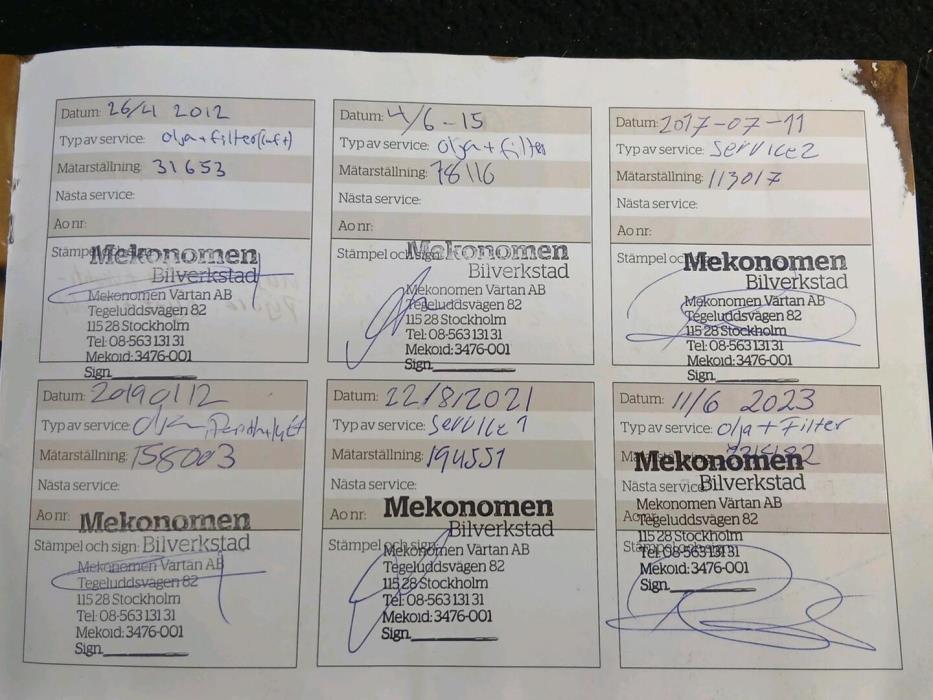 Datum: 26/4 2012
Typ av service: olja + filter (luft)
Mätarställning: 31653
Nästa service:
Ao nr:
Stämpel och sign:
Mekonomen
Bilverkstad
Mekonomen Värtan AB
Tegeluddsvägen 82
115 28 Stockholm
Tel: 08-563 131 31
Mekoid: 3476-001
Sign.
Datum: 4/6-15
Typ av service: olja + filter
Mätarställning: 78116
Nästa service:
Ao nr:
Stämpel och sign:
Mekonomen
Bilverkstad
Mekonomen Värtan AB
Tegeluddsvägen 82
115 28 Stockholm
Tel: 08-563 131 31
Mekoid: 3476-001
Sign.
Datum: 2017-07-11
Typ av service: Service 2
Mätarställning: 113017
Nästa service:
Ao nr:
Stämpel och sign:
Mekonomen
Bilverkstad
Mekonomen Värtan AB
Tegeluddsvägen 82
115 28 Stockholm
Tel: 08-563 131 31
Mekoid: 3476-001
Sign.
Datum: 20190112
Typ av service: Olja,
Mätarställning: 158003
Nästa service:
Ao nr:
Stämpel och sign:
Mekonomen
Bilverkstad
Mekonomen Värtan AB
Tegeluddsvägen 82
115 28 Stockholm
Tel: 08-563 131 31
Mekoid: 3476-001
Sign.
Datum: 22/8/2021
Typ av service: Service 1
Mätarställning: 194551
Nästa service:
Ao nr:
Stämpel och sign:
Mekonomen
Bilverkstad
Mekonomen Värtan AB
Tegeluddsvägen 82
115 28 Stockholm
Tel: 08-563 131 31
Mekoid: 3476-001
Sign.
Datum: 11/6 2023
Typ av service: olja + Filter
Mätarställning:
Nästa service:
Ao nr:
Stämpel och sign:
Mekonomen
Bilverkstad
Mekonomen Värtan AB
Tegeluddsvägen 82
115 28 Stockholm
Tel: 08-563 131 31
Mekoid: 3476-001
Sign.